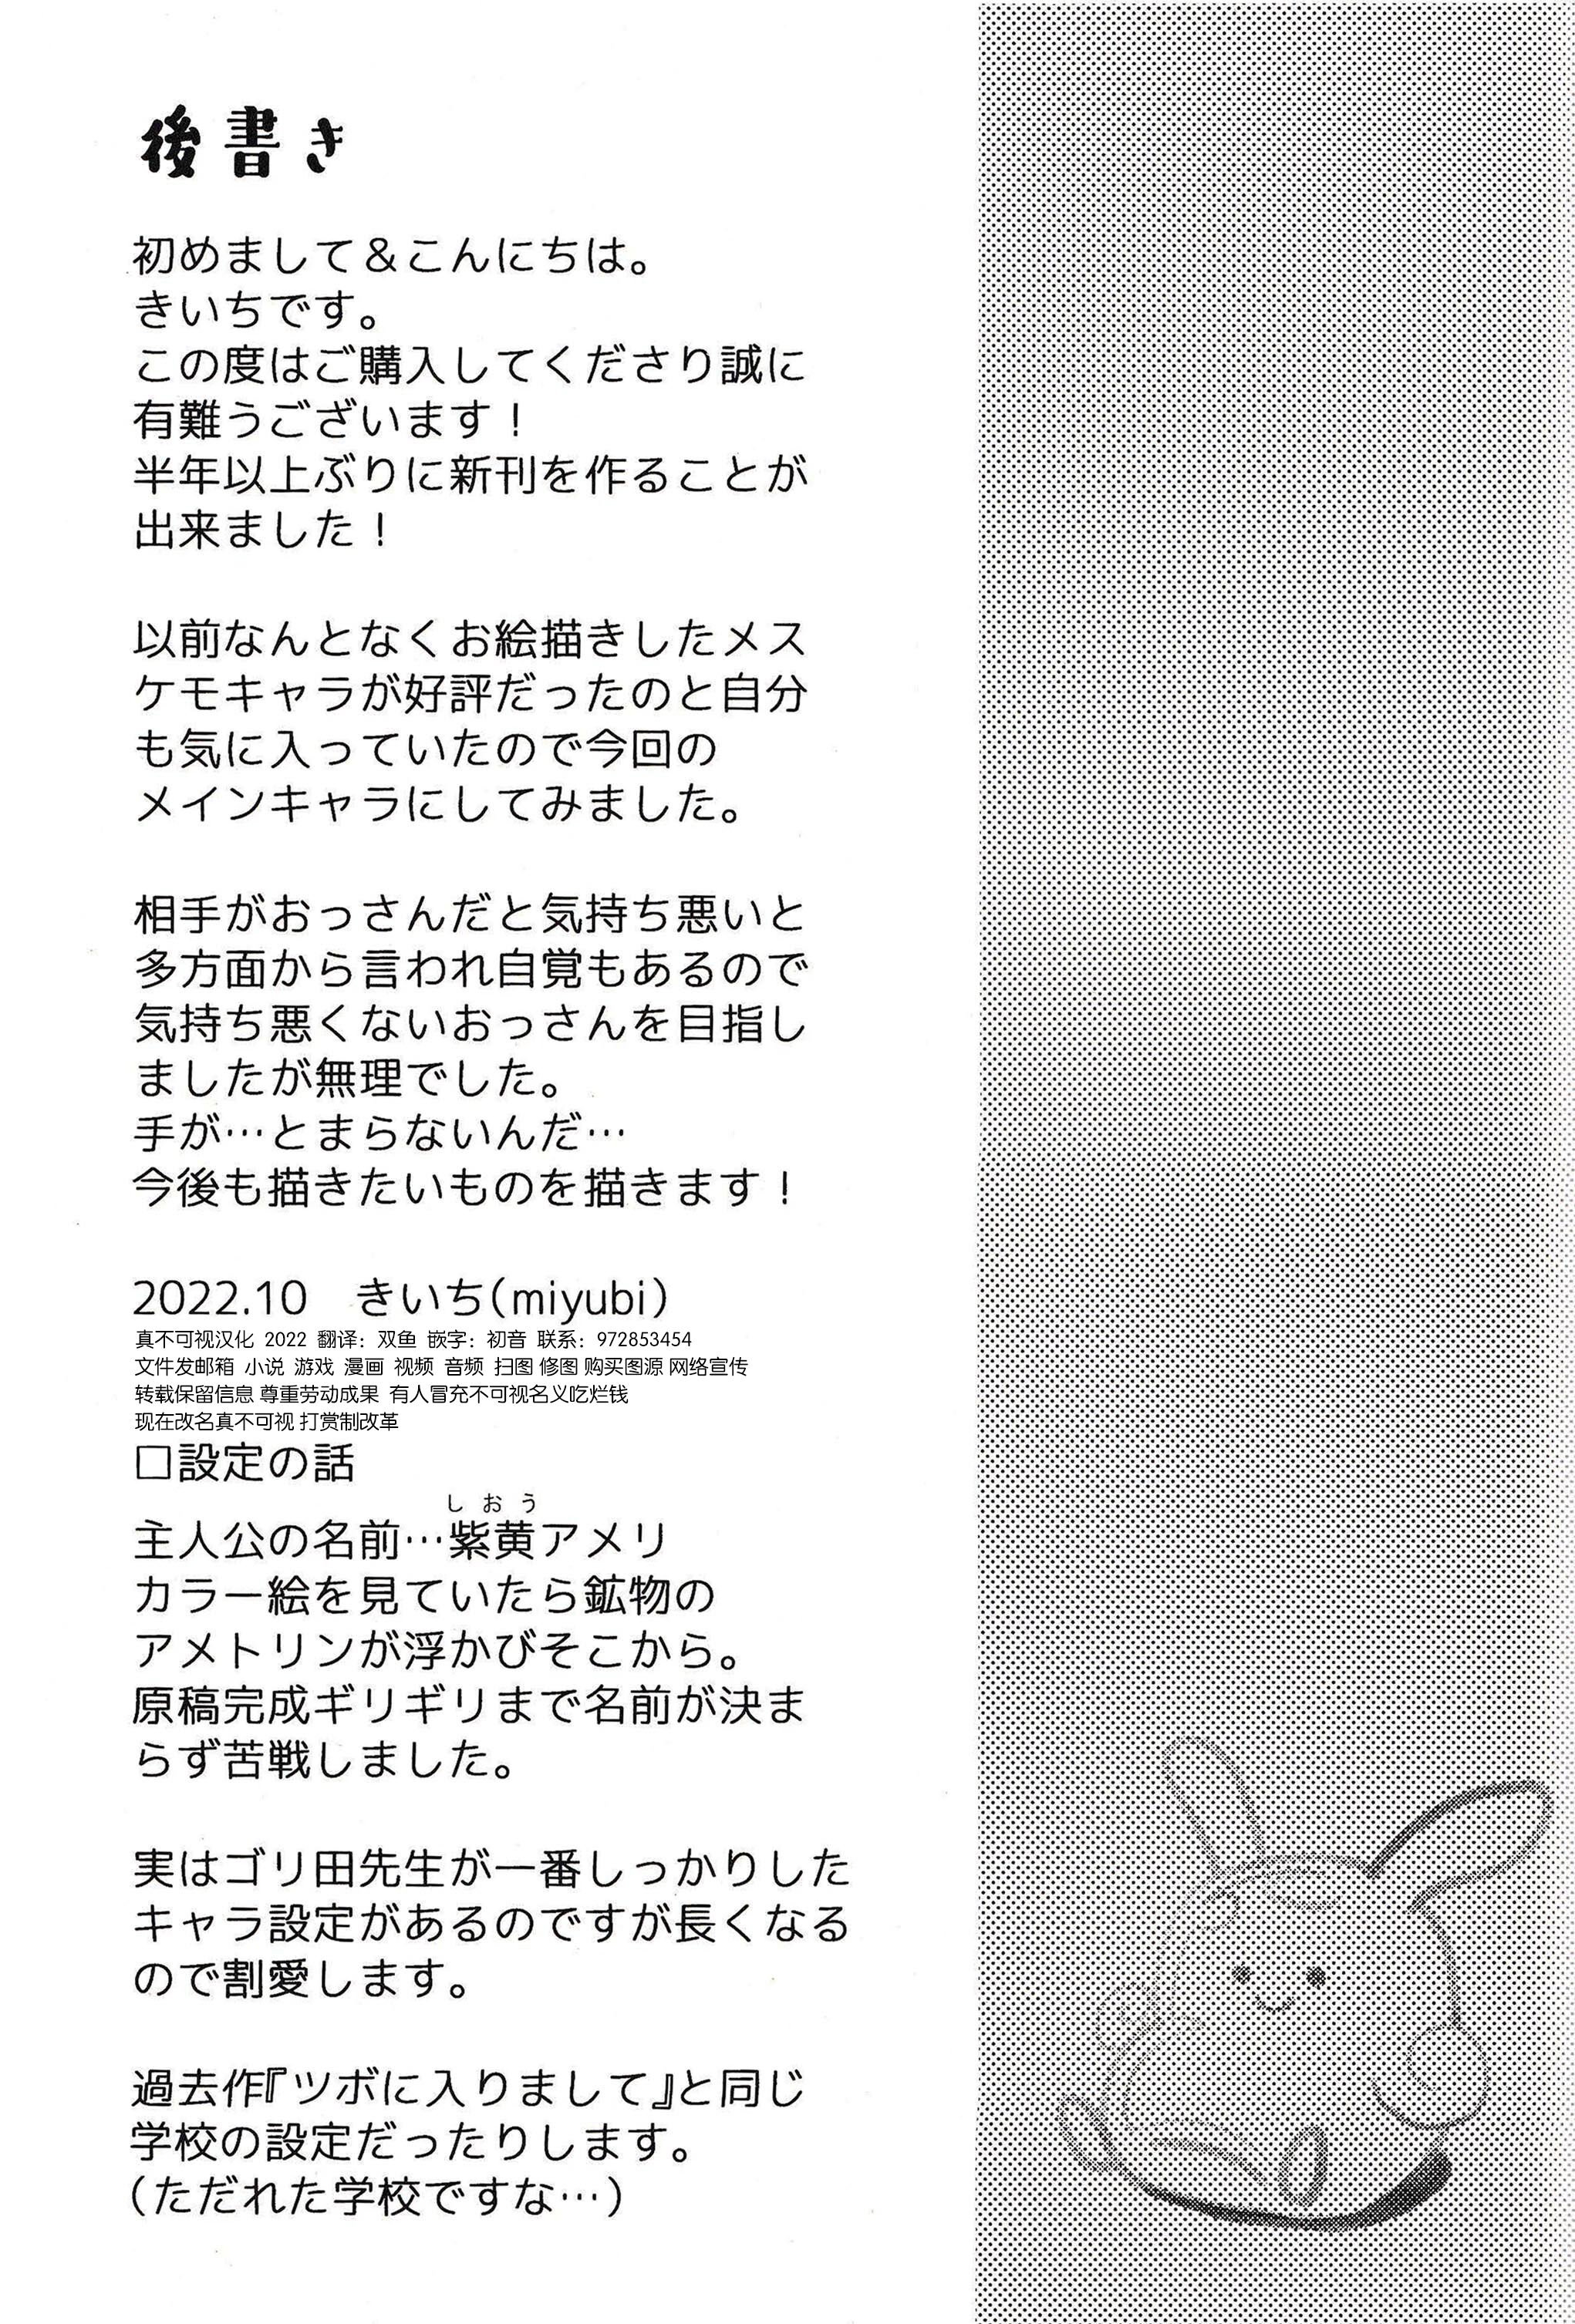 後書き
初めまして＆こんにちは。
きいちです。
この度はご購入してくださり誠に
有難うございます！
半年以上ぶりに新刊を作ることが
出来ました！
以前なんとなくお絵描きしたメス
ケモキャラが好評だったのと自分
も気に入っていたので今回の
メインキャラにしてみました。
相手がおっさんだと気持ち悪いと
多方面から言われ自覚もあるので
気持ち悪くないおっさんを目指し
ましたが無理でした。
手が…とまらないんだ…
今後も描きたいものを描きます！
2022.10　きいち(miyubi)
真不可视汉化 2022 翻译：双鱼 嵌字：初音 联系：972853454
文件发邮箱 小说 游戏 漫画 视频 音频 扫图 修图 购买图源 网络宣传
转载保留信息 尊重劳动成果 有人冒充不可视名义吃烂钱
现在改名真不可视 打赏制改革
□設定の話
しおう
主人公の名前…紫黄アメリ
カラー絵を見ていたら鉱物の
アメトリンが浮かびそこから。
原稿完成ギリギリまで名前が決ま
らず苦戦しました。
実はゴリ田先生が一番しっかりした
キャラ設定があるのですが長くなる
ので割愛します。
過去作『ツボに入りまして』と同じ
学校の設定だったりします。
（ただれた学校ですな…）